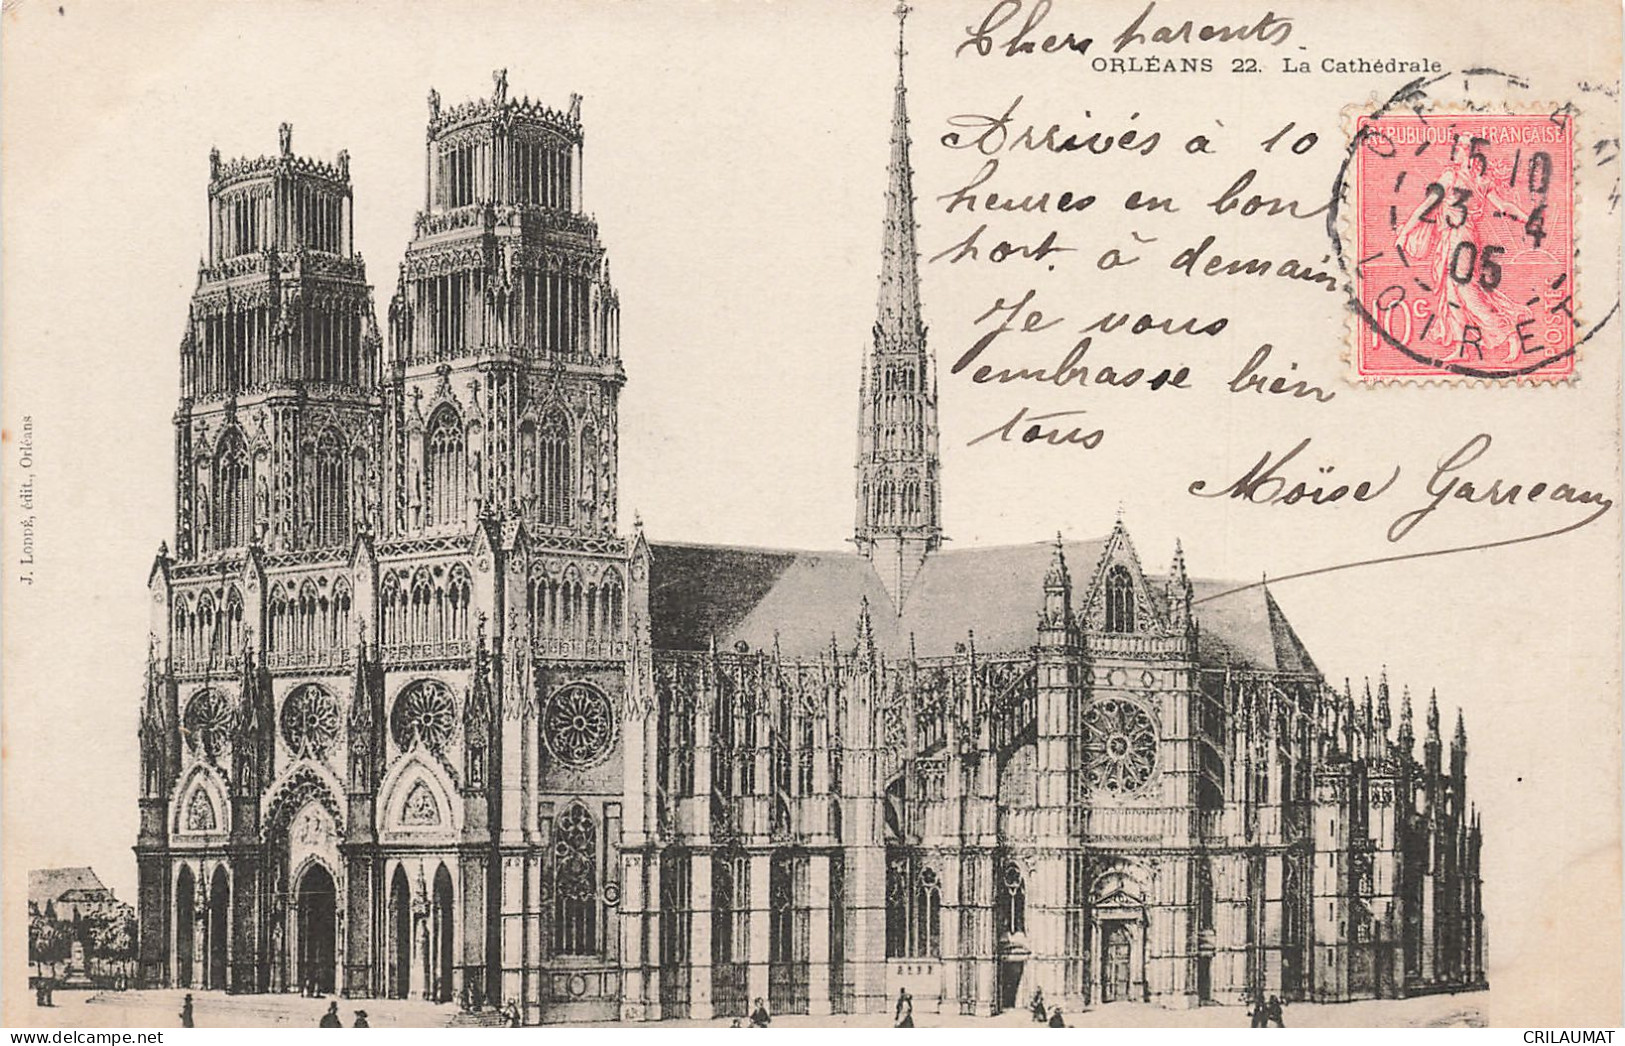 Chers parents
ORLÉANS 22. La Cathédrale
Arrivés à 10
heures en bon
port. à demain
Je vous
embrasse bien
tous
Moïse Garreau
RÉPUBLIQUE FRANÇAISE
10c
POSTES
15 10
23 - 4
05
LOIRET
J. LODDÉ, édit., Orléans
CRILAUMAT